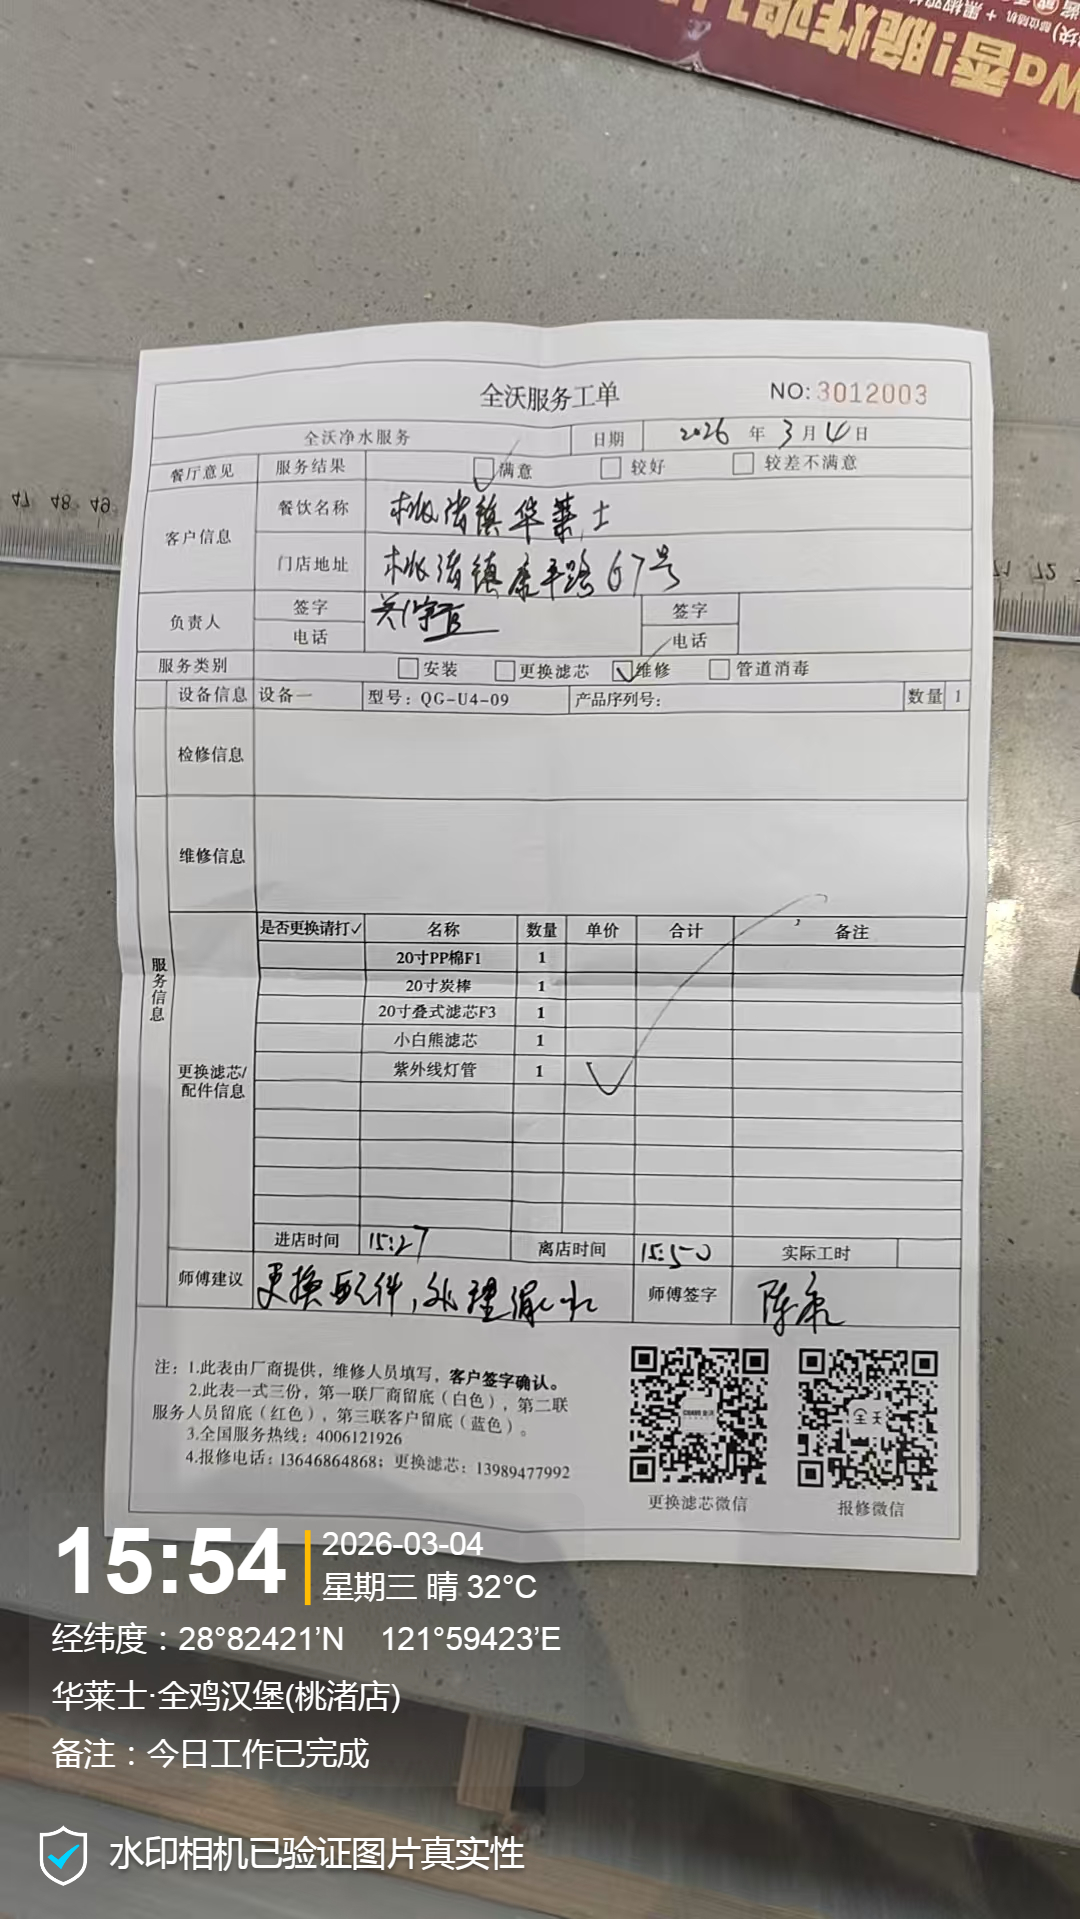 Wa香!脆炸鸡
全沃服务工单
NO: 3012003
全沃净水服务 日期 2026 年 3 月 4 日
餐厅意见 服务结果 满意 较好 较差不满意
客户信息 餐饮名称 桃渚镇华莱士
门店地址 桃渚镇康平路67号
负责人 签字 签字
电话 电话
服务类别 安装 更换滤芯 维修 管道消毒
设备信息 设备一 型号：QG-U4-09 产品序列号： 数量 1
检修信息
维修信息
服务信息
是否更换请打✓ 名称 数量 单价 合计 备注
20寸PP棉F1 1
20寸炭棒 1
20寸叠式滤芯F3 1
小白熊滤芯 1
紫外线灯管 1
更换滤芯/
配件信息
进店时间 15:27 离店时间 15:50 实际工时
师傅建议 更换配件，处理漏水 师傅签字
注：1.此表由厂商提供，维修人员填写，客户签字确认。
2.此表一式三份，第一联厂商留底（白色），第二联
服务人员留底（红色），第三联客户留底（蓝色）。
3.全国服务热线：4006121926
4.报修电话：13646864868；更换滤芯：13989477992
更换滤芯微信 报修微信
47 48 49
71 72
15:54
2026-03-04
星期三 晴 32°C
经纬度：28°82421'N 121°59423'E
华莱士·全鸡汉堡(桃渚店)
备注：今日工作已完成
水印相机已验证图片真实性